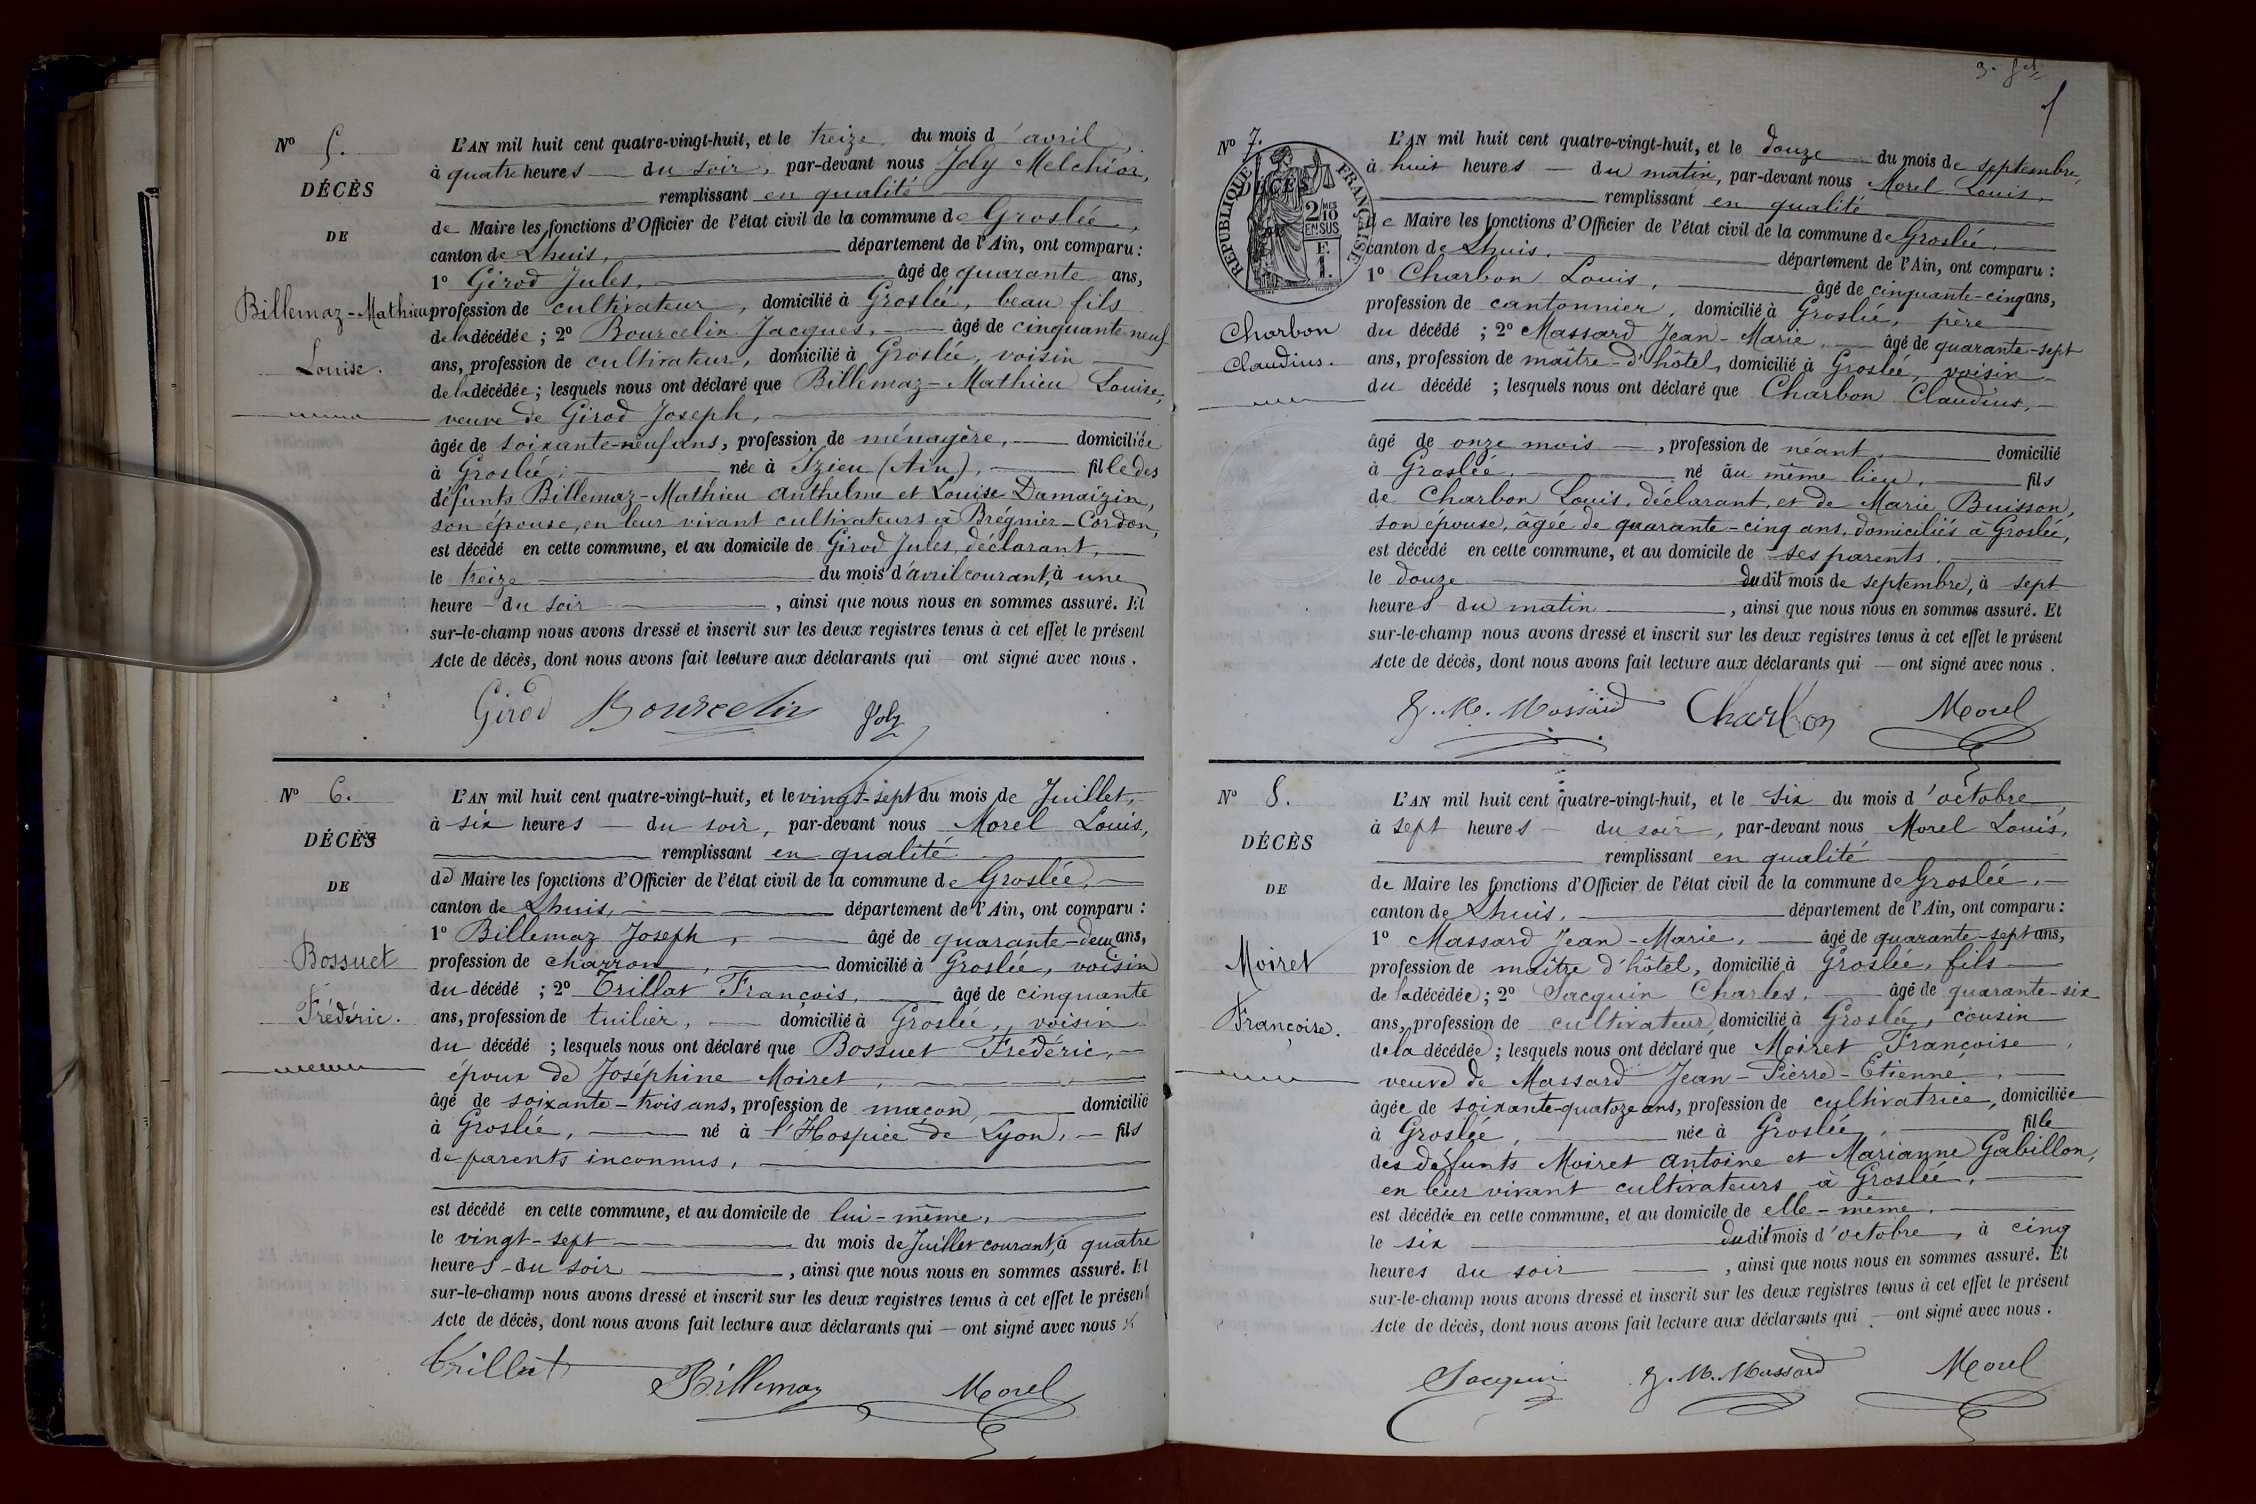 N° 5.
DÉCÈS
DE
Billemaz-Mathieu
Louise.
L'AN mil huit cent quatre-vingt-huit, et le treize du mois d'avril,
à quatre heures — du soir, par-devant nous Joly Melchior,
remplissant en qualité
de Maire les fonctions d'Officier de l'état civil de la commune de Groslée,
canton de Lhuis, département de l'Ain, ont comparu :
1° Girod Jules, âgé de quarante ans,
profession de cultivateur, domicilié à Groslée, beau fils
de la décédée ; 2° Bourcelin Jacques, âgé de cinquante-neuf
ans, profession de cultivateur, domicilié à Groslée, voisin
de la décédée ; lesquels nous ont déclaré que Billemaz-Mathieu Louise,
veuve de Girod Joseph,
âgée de soixante-neuf ans, profession de ménagère, domiciliée
à Groslée, née à Izieu (Ain), fille des
défunts Billemaz-Mathieu Anthelme et Louise Damaizin,
son épouse, en leur vivant cultivateurs à Brégnier-Cordon,
est décédé en cette commune, et au domicile de Girod Jules, déclarant,
le treize du mois d'avril courant, à une
heure du soir, ainsi que nous nous en sommes assuré. Et
sur-le-champ nous avons dressé et inscrit sur les deux registres tenus à cet effet le présent
Acte de décès, dont nous avons fait lecture aux déclarants qui — ont signé avec nous.
Girod Bourcelin Joly
N° 6.
DÉCÈS
DE
Bossuet
Frédéric.
L'AN mil huit cent quatre-vingt-huit, et le vingt-sept du mois de Juillet,
à six heures — du soir, par-devant nous Morel Louis,
remplissant en qualité
de Maire les fonctions d'Officier de l'état civil de la commune de Groslée,
canton de Lhuis, département de l'Ain, ont comparu :
1° Billemaz Joseph, âgé de quarante-deux ans,
profession de charron, domicilié à Groslée, voisin
du décédé ; 2° Trillat François, âgé de cinquante
ans, profession de tuilier, domicilié à Groslée, voisin
du décédé ; lesquels nous ont déclaré que Bossuet Frédéric,
époux de Joséphine Moiret,
âgé de soixante-trois ans, profession de maçon, domicilié
à Groslée, né à l'Hospice de Lyon, fils
de parents inconnus,
est décédé en cette commune, et au domicile de lui-même,
le vingt-sept du mois de Juillet courant, à quatre
heures du soir, ainsi que nous nous en sommes assuré. Et
sur-le-champ nous avons dressé et inscrit sur les deux registres tenus à cet effet le présent
Acte de décès, dont nous avons fait lecture aux déclarants qui — ont signé avec nous.
Trillat Billemaz Morel
N° 7.
DÉCÈS
RÉPUBLIQUE FRANÇAISE
2/10 MES
EN SUS
F.
1.
Charbon
Claudius.
L'AN mil huit cent quatre-vingt-huit, et le douze du mois de septembre,
à huit heures — du matin, par-devant nous Morel Louis,
remplissant en qualité
de Maire les fonctions d'Officier de l'état civil de la commune de Groslée,
canton de Lhuis, département de l'Ain, ont comparu :
1° Charbon Louis, âgé de cinquante-cinq ans,
profession de cantonnier, domicilié à Groslée, père
du décédé ; 2° Massard Jean-Marie, âgé de quarante-sept
ans, profession de maître-d'hôtel, domicilié à Groslée, voisin
du décédé ; lesquels nous ont déclaré que Charbon Claudius,
âgé de onze mois, profession de néant, domicilié
à Groslée, né au même lieu, fils
de Charbon Louis, déclarant, et de Marie Buisson,
son épouse, âgée de quarante-cinq ans, domiciliés à Groslée,
est décédé en cette commune, et au domicile de ses parents,
le douze dudit mois de septembre, à sept
heures du matin, ainsi que nous nous en sommes assuré. Et
sur-le-champ nous avons dressé et inscrit sur les deux registres tenus à cet effet le présent
Acte de décès, dont nous avons fait lecture aux déclarants qui — ont signé avec nous.
J. M. Massard Charbon Morel
N° 8.
DÉCÈS
DE
Moiret
Françoise.
L'AN mil huit cent quatre-vingt-huit, et le six du mois d'octobre,
à sept heures — du soir, par-devant nous Morel Louis,
remplissant en qualité
de Maire les fonctions d'Officier de l'état civil de la commune de Groslée,
canton de Lhuis, département de l'Ain, ont comparu :
1° Massard Jean-Marie, âgé de quarante-sept ans,
profession de maître d'hôtel, domicilié à Groslée, fils
de la décédée ; 2° Sacquin Charles, âgé de quarante-six
ans, profession de cultivateur, domicilié à Groslée, cousin
de la décédée ; lesquels nous ont déclaré que Moiret Françoise,
veuve de Massard Jean-Pierre-Etienne,
âgée de soixante-quatorze ans, profession de cultivatrice, domiciliée
à Groslée, née à Groslée, fille
des défunts Moiret Antoine et Marianne Gabillon,
en leur vivant cultivateurs à Groslée,
est décédée en cette commune, et au domicile de elle-même,
le six dudit mois d'octobre, à cinq
heures du soir, ainsi que nous nous en sommes assuré. Et
sur-le-champ nous avons dressé et inscrit sur les deux registres tenus à cet effet le présent
Acte de décès, dont nous avons fait lecture aux déclarants qui — ont signé avec nous.
Sacquin J. M. Massard Morel